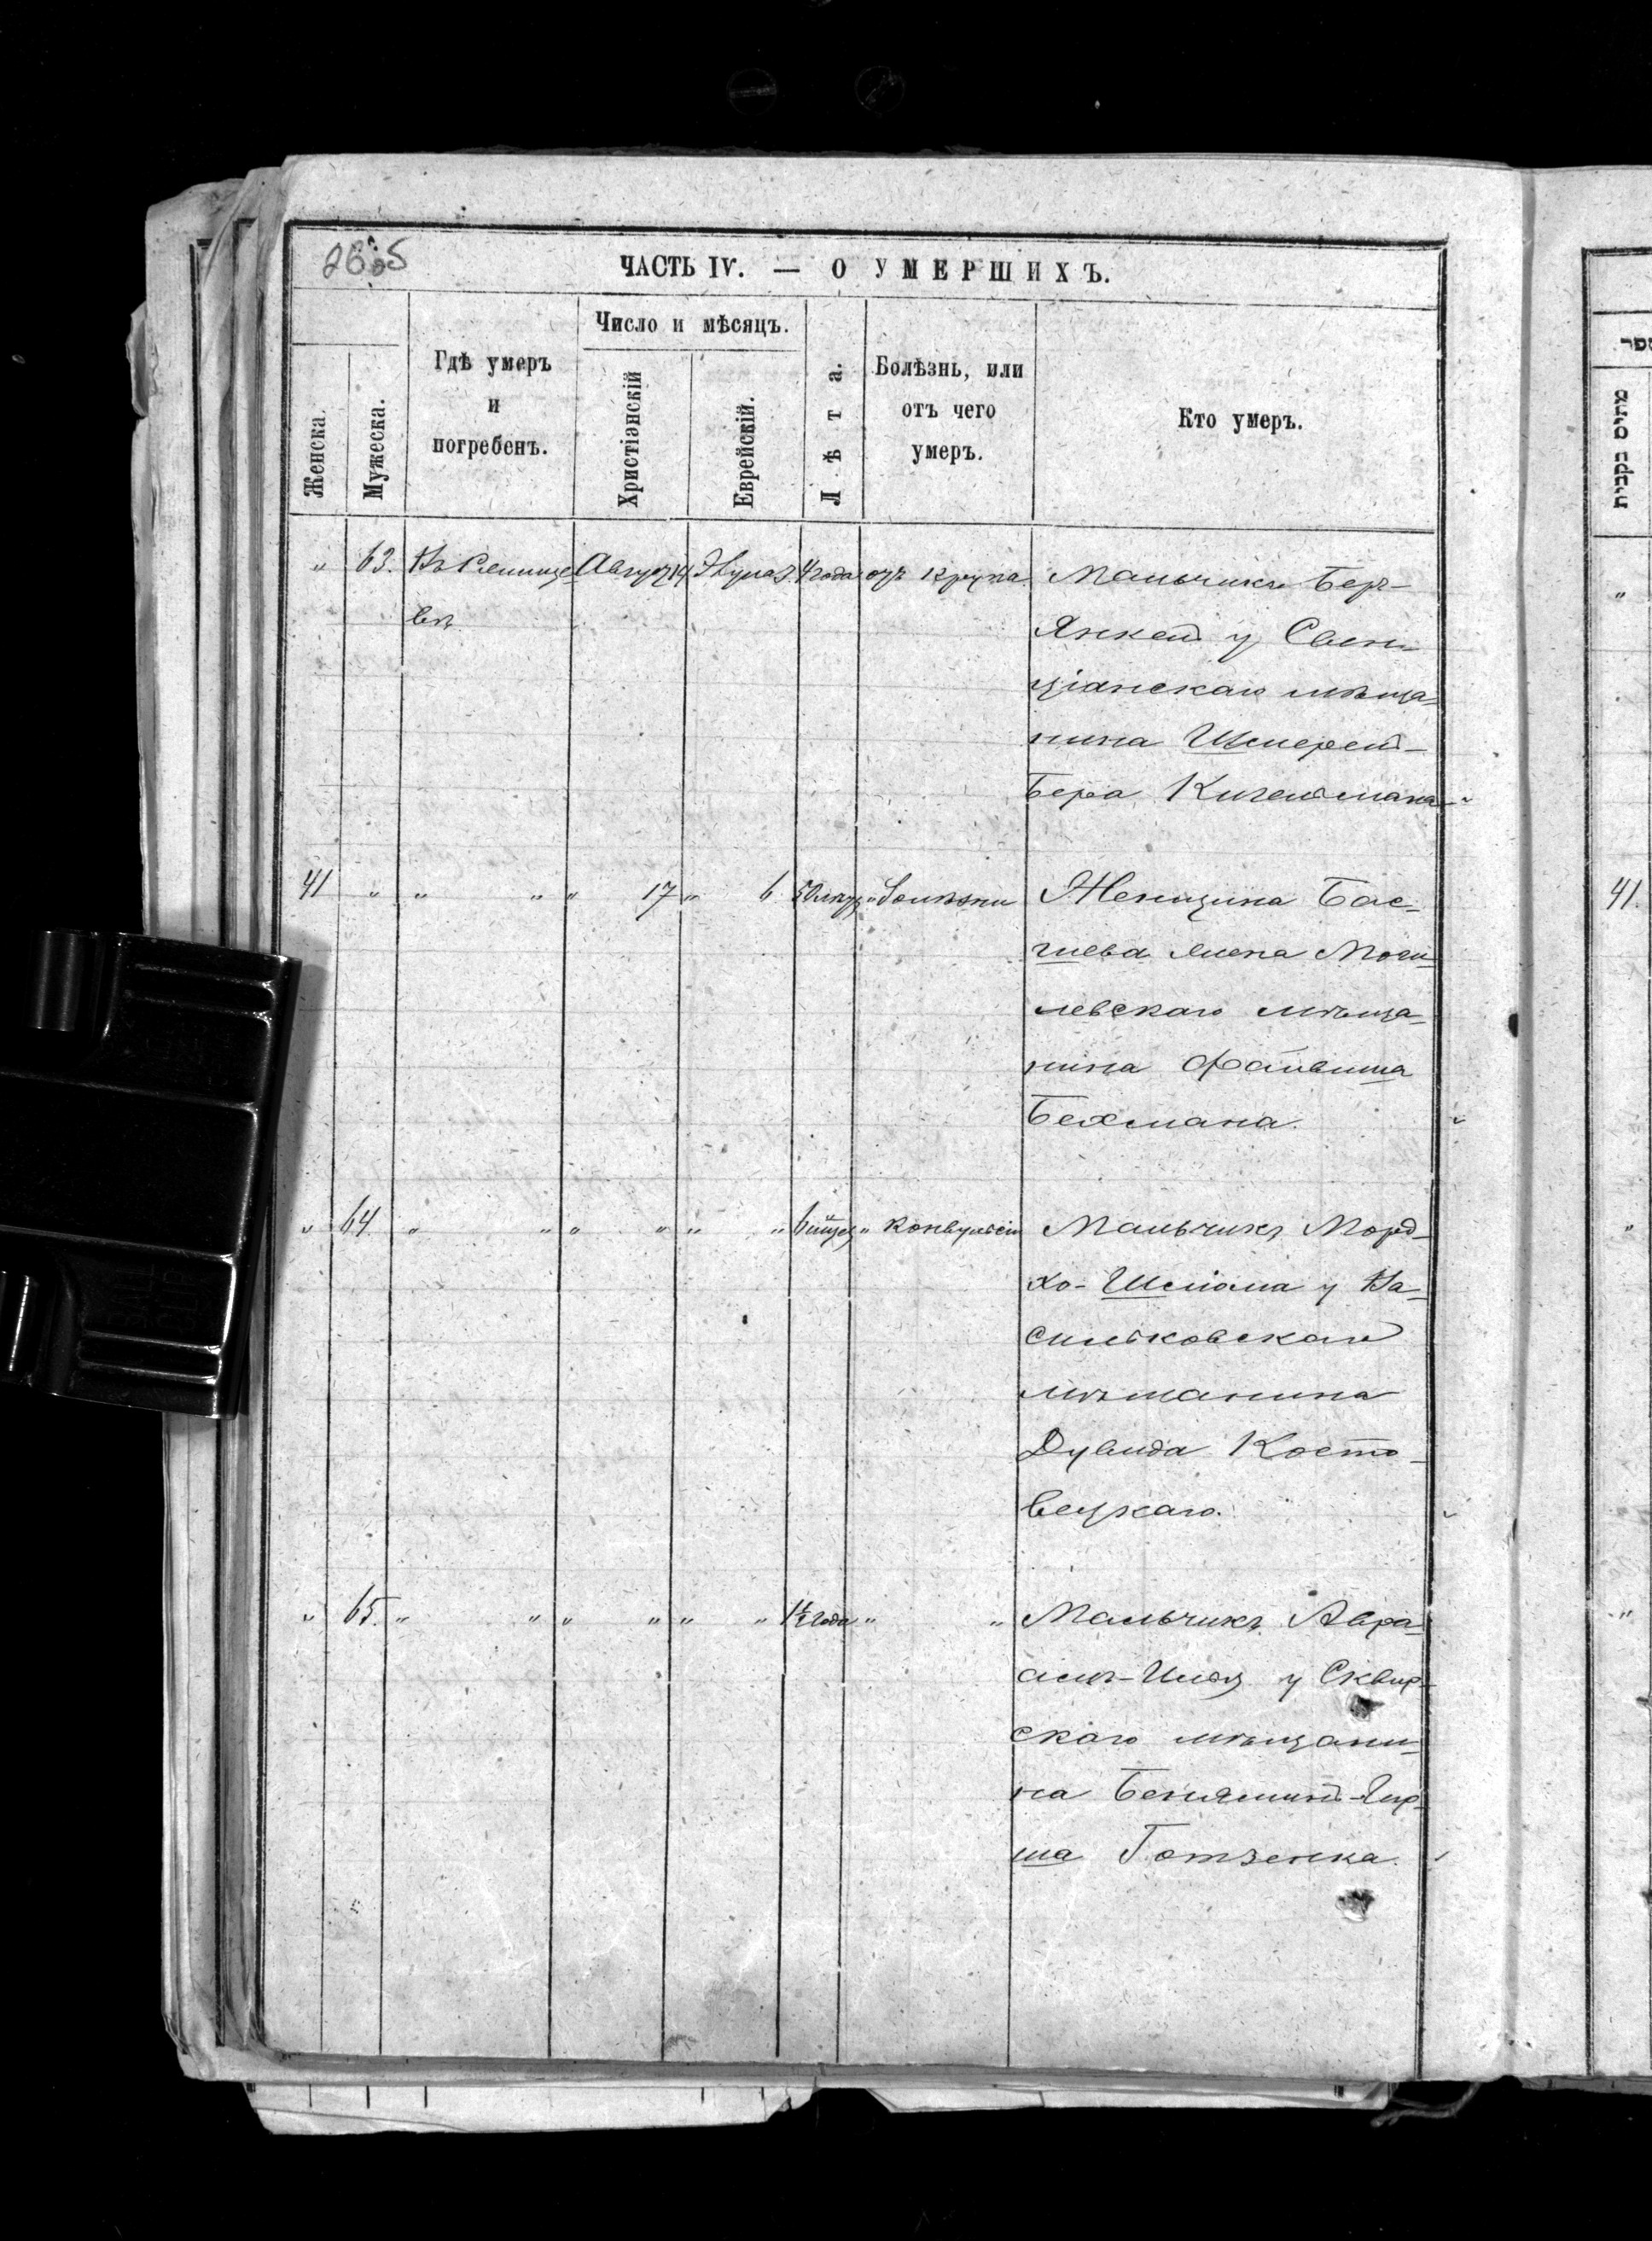 ЧАСТЬ IV. — О УМЕРШИХЪ.
Женска.
Мужеска.
Гдѣ умеръ
и
погребенъ.
Число и мѣсяцъ.
Христіэнскій
Еврейскій.
Лѣта.
Болѣзнь, или
отъ чего
умеръ.
Кто умеръ.
" 63. Августа 14 3 4 года отъ крупа. Мальчикъ Беръ-
вѣ Янкель у Свен-
ціанскаго мѣща-
нина Шмерель-
Бера
41 " " " " 17 " 6 50 " болѣзни Женщина Бас-
шева жена Моги-
левскаго мѣща-
нина Файвиша
Бехмана.
" 64. " " " " " " 6 " конвульсіи Мальчикъ Морд-
хо-Шліома у Ва-
сильковскаго
мѣщанина
Дувида Косто-
вецкаго.
" 65. " " " " " " 1½ года " " Мальчикъ Авра-
амъ-Илья у Сквир-
скаго мѣщани-
на Беньяминъ-Гир-
ша Готзенка.
ספר
מתים נקבות
"
41.
"
"